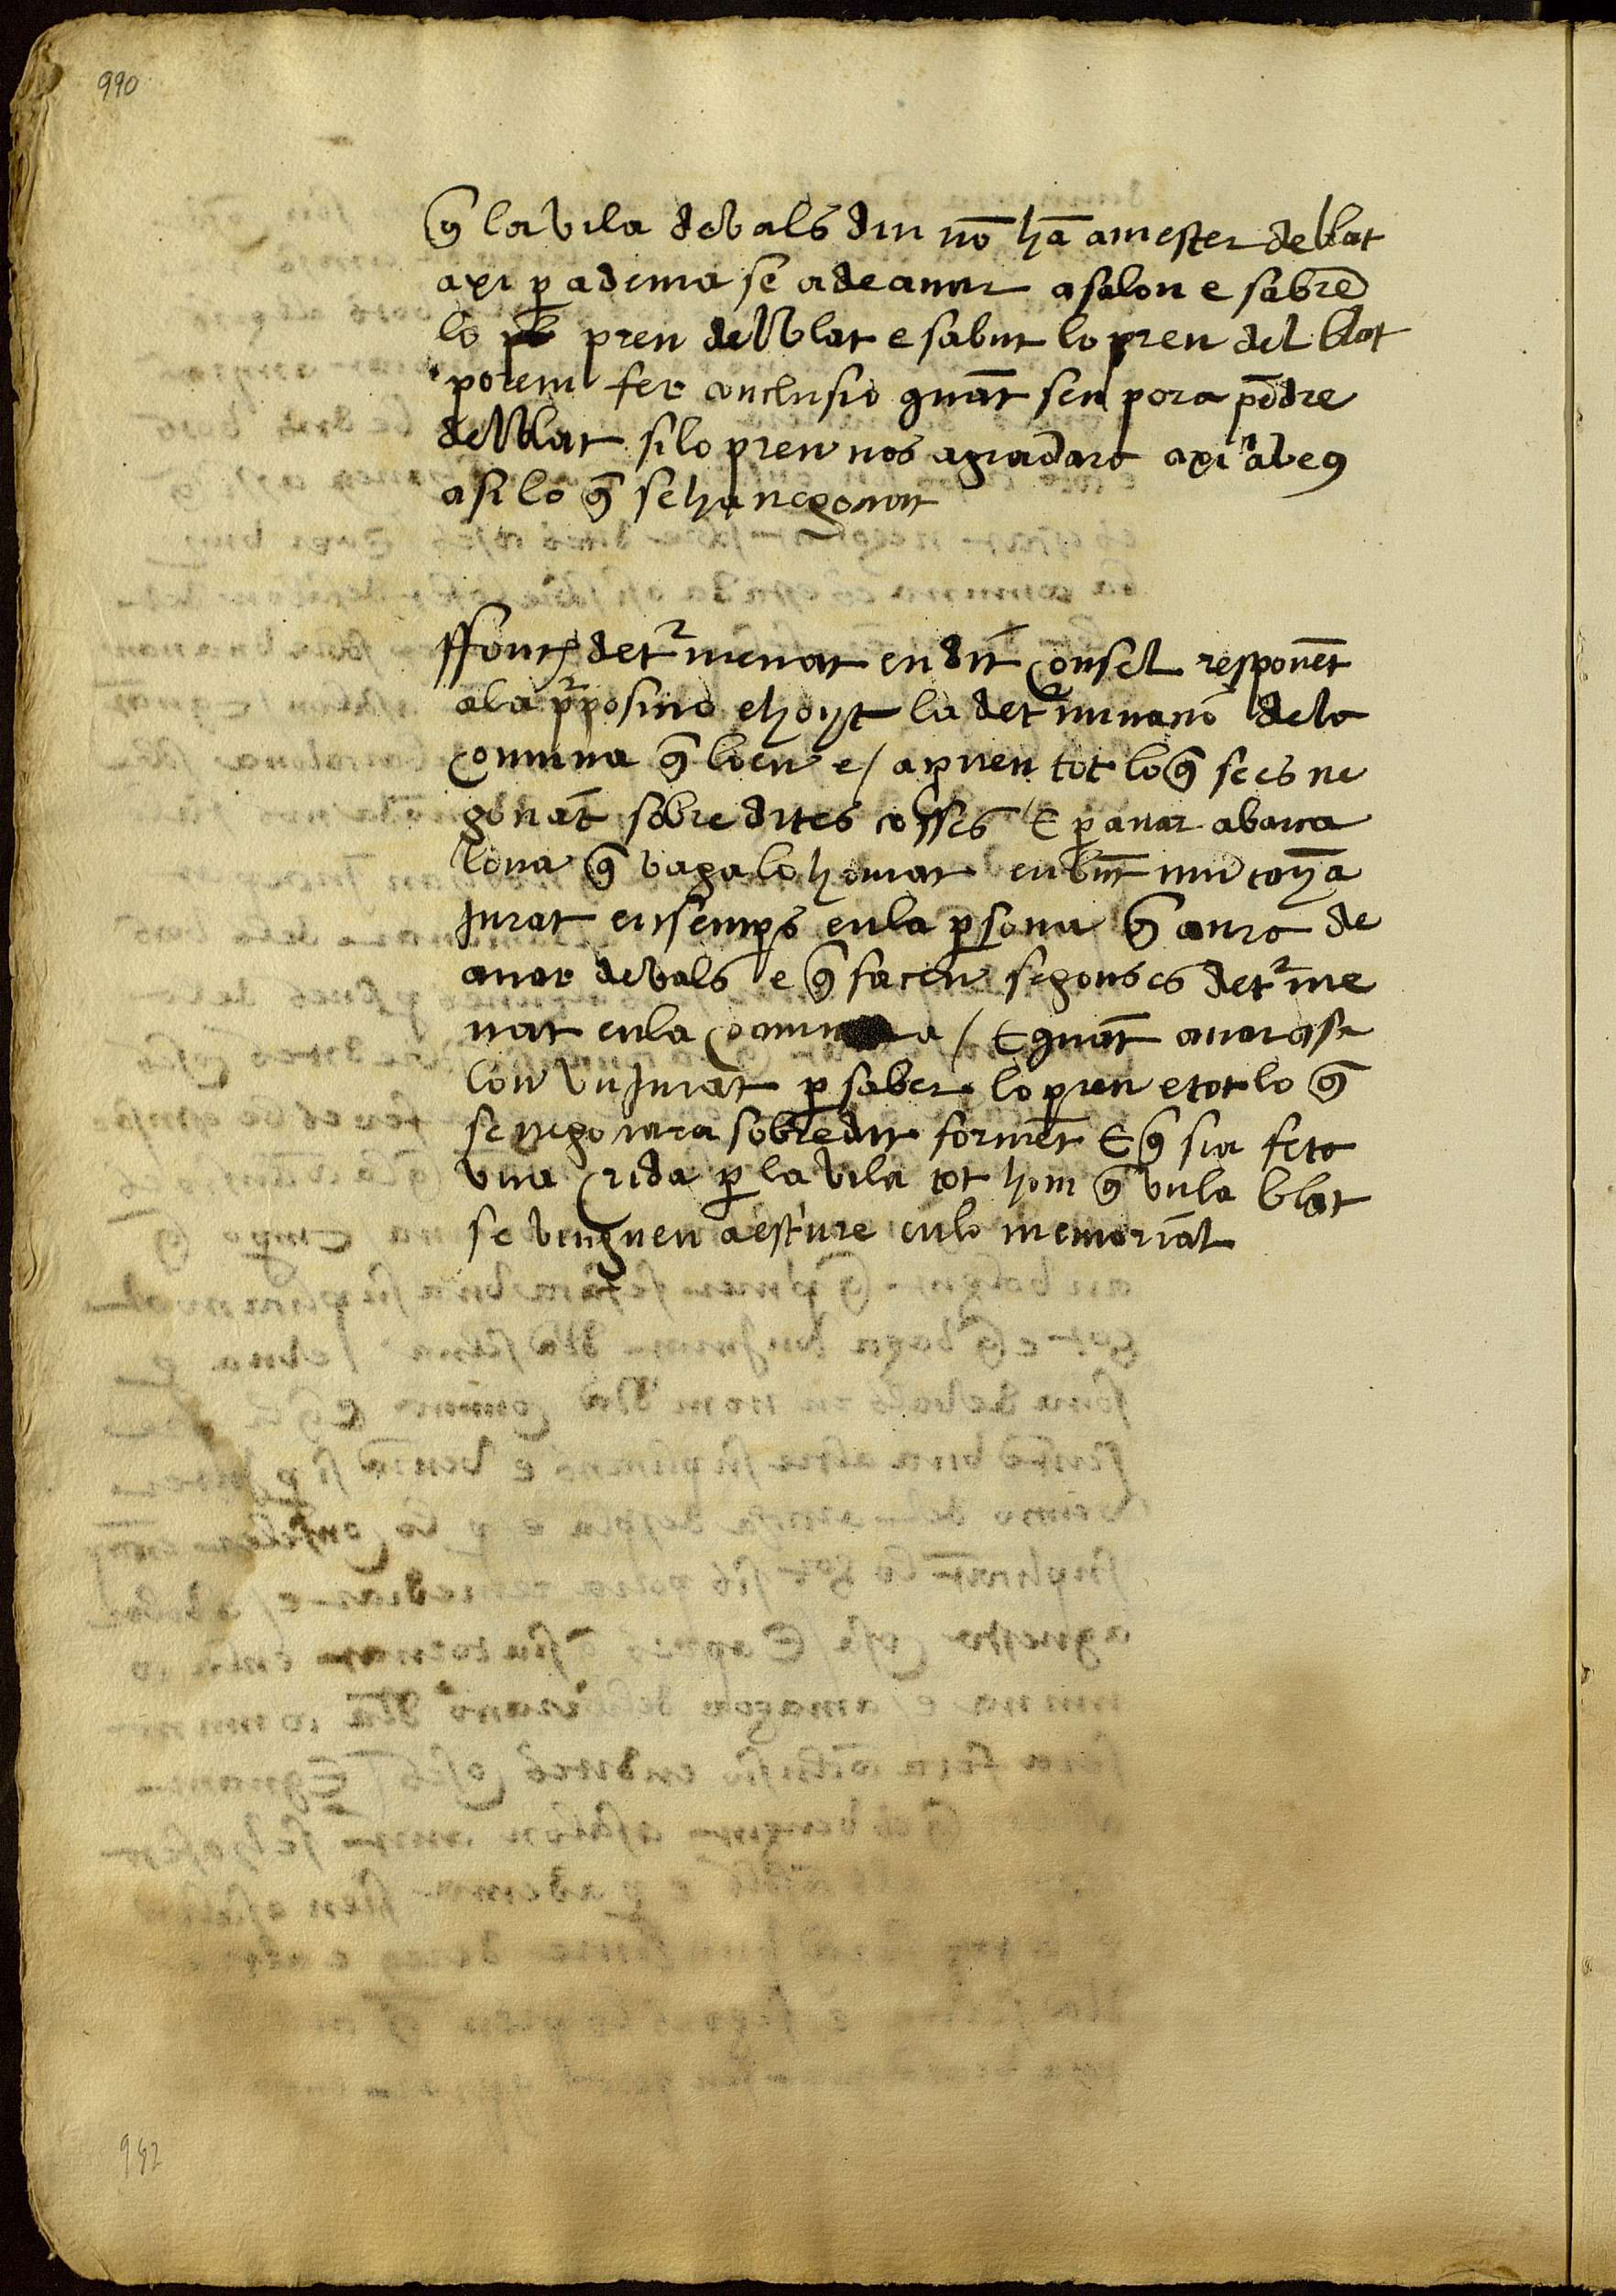 990
q̄ la vila de vals diu nō hā a mester de blat
axi p̱ a dema se a de anar a salou e sabrē
lo pren del blat e sabut lo pren del blat
porem fer conclusio quāt sen pora pēdre
del blat si lo pren nos agradara axi
asi lo q̄ se ha negociat
ffonch det²menat en dit consel responēt
a la p²posicio e hoyt la det²minacio de la
comuna q̄ loen e / aproven tot lo q̄ se es ne
gociāt sobre dites cosses E p̱ anar a barca
lona q̄ vaga lo honrat en
Jurat ensemps en la p̱sona q̄ aura de
anar de vals e q̄ facen segons es det²me
nat en la comuna / E quāt anar a sa
lou vn Jurat p̱ saber lo pren e tot lo q̄
se negociara sobre dit formēt E q̄ sia feta
vna crida p̱ la vila tot hom q̄ vula blat
se vinguen a escriure en lo memorial
992